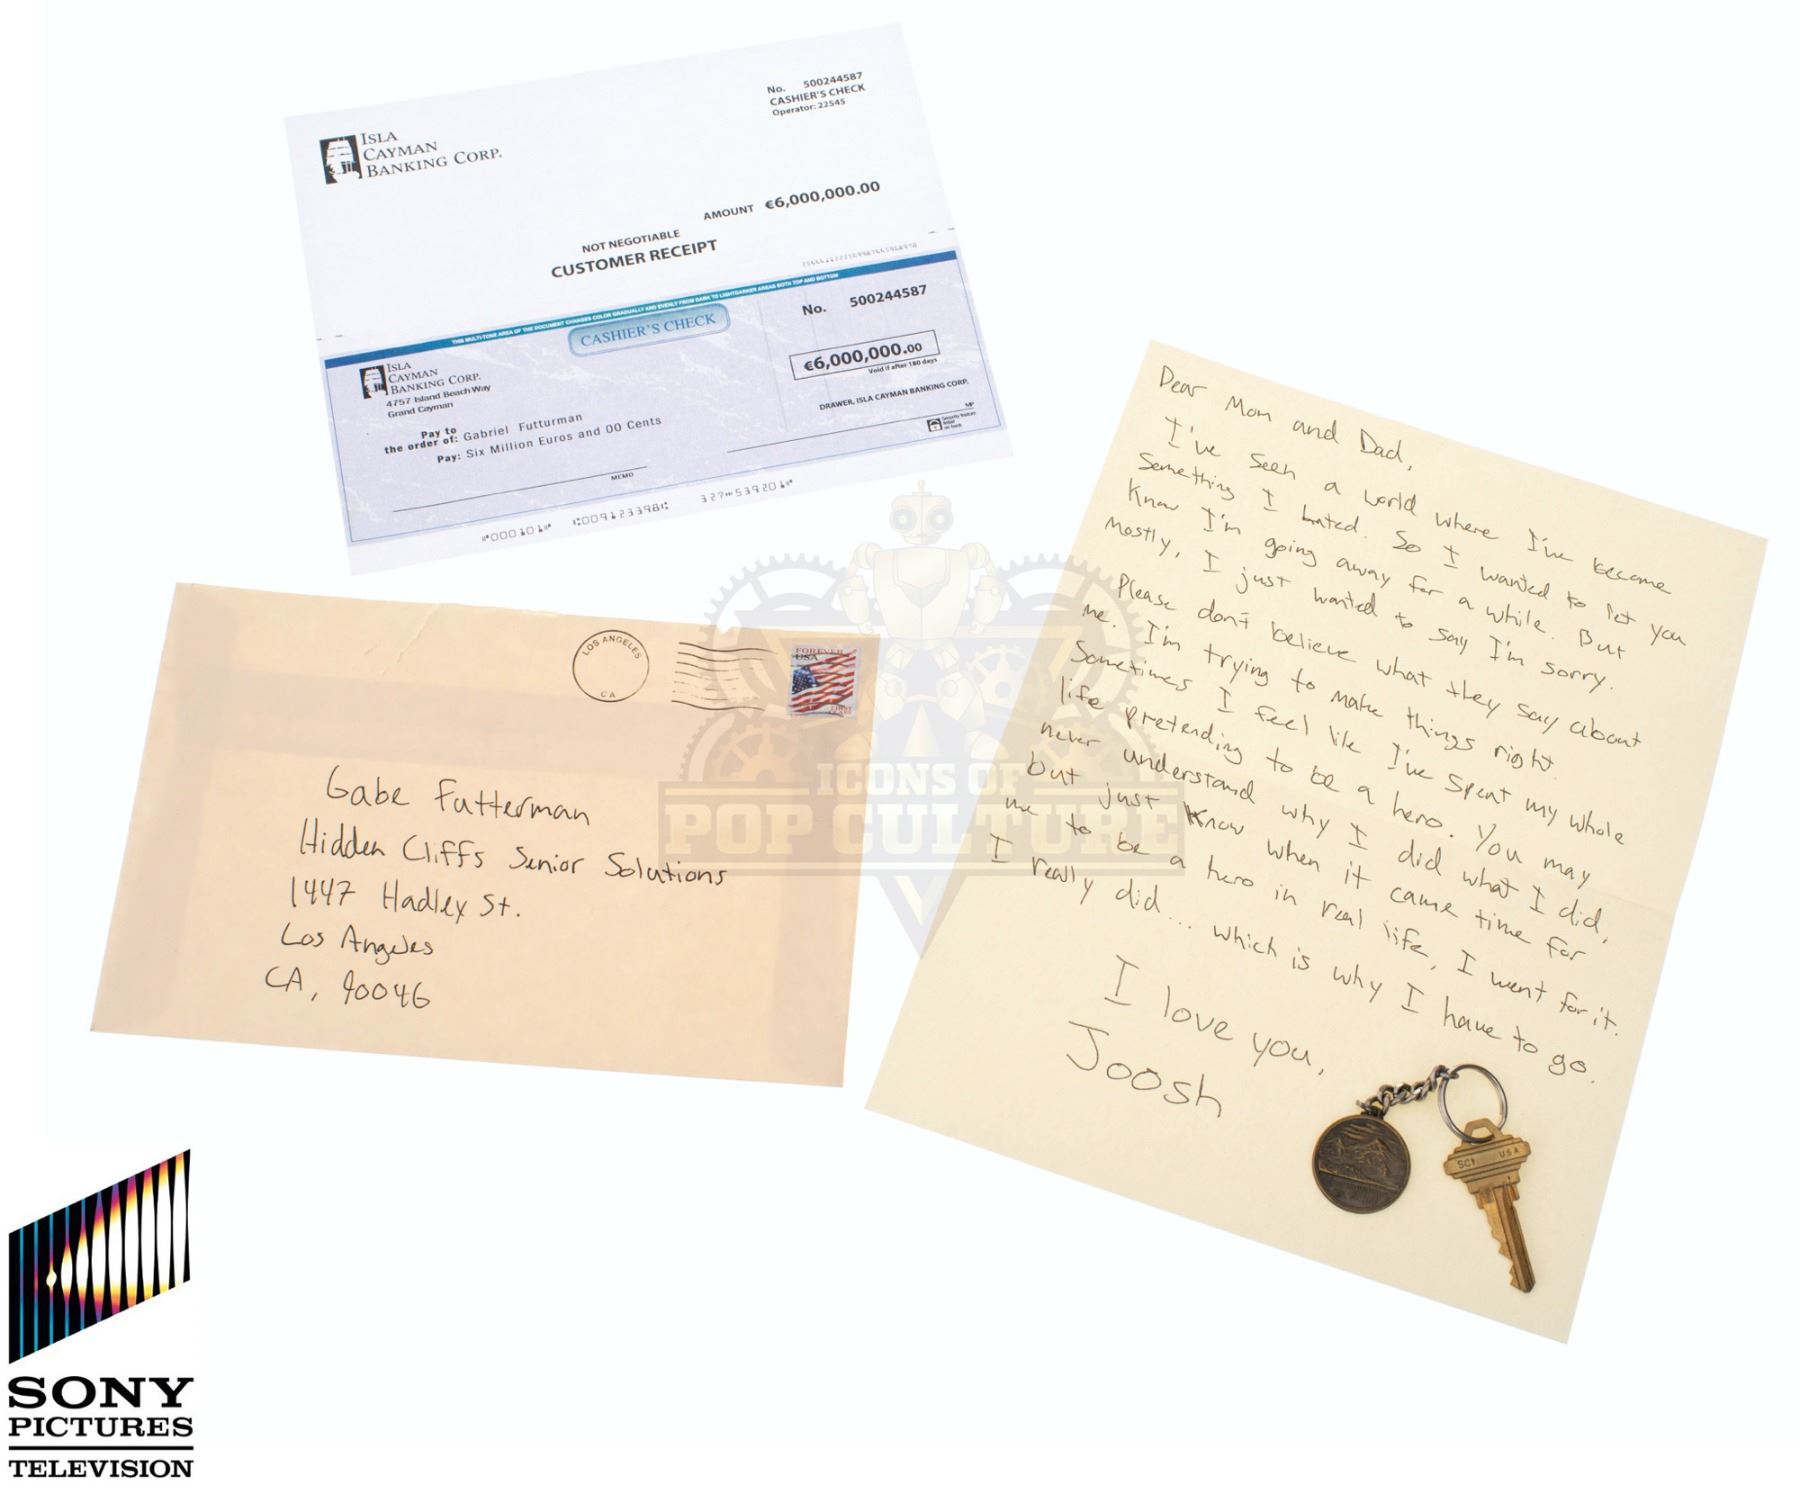 No. 500244587
CASHIER'S CHECK
Operator: 22545
ISLA
CAYMAN
BANKING CORP.
AMOUNT €6,000,000.00
NOT NEGOTIABLE
CUSTOMER RECEIPT
THIS MULTI-TONE AREA OF THE DOCUMENT CHANGES COLOR GRADUALLY AND EVENLY FROM DARK TO LIGHT DARKER AREAS BOTH TOP AND BOTTOM
CASHIER'S CHECK
No. 500244587
€6,000,000.00
Void if after 180 days
DRAWER, ISLA CAYMAN BANKING CORP.
ISLA
CAYMAN
BANKING CORP.
4757 Island Beach Way
Grand Cayman
Pay to
the order of: Gabriel Futturman
Pay: Six Million Euros and 00 Cents
MEMO
MP
Security feature
on back
⑈000101⑈ ⑆009123398⑆ 327⑉539201⑈
LOS ANGELES
CA
FOREVER
USA
Gabe Futterman
Hidden Cliffs Senior Solutions
1447 Hadley St.
Los Angeles
CA, 90046
Dear Mom and Dad,
I've seen a world where I've become
something I hated. So I wanted to let you
know I'm going away for a while. But
mostly, I just wanted to say I'm sorry.
Please don't believe what they say about
me. I'm trying to make things right.
Sometimes I feel like I've spent my whole
life pretending to be a hero. You may
never understand why I did what I did,
but just know when it came time for
me to be a hero in real life, I went for it.
I really did... which is why I have to go.
I love you,
Joosh
USA
ICONS OF
POP CULTURE
SONY
PICTURES
TELEVISION